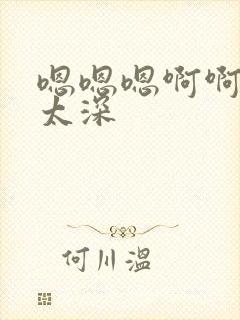 嗯嗯嗯啊啊
太深
何川温